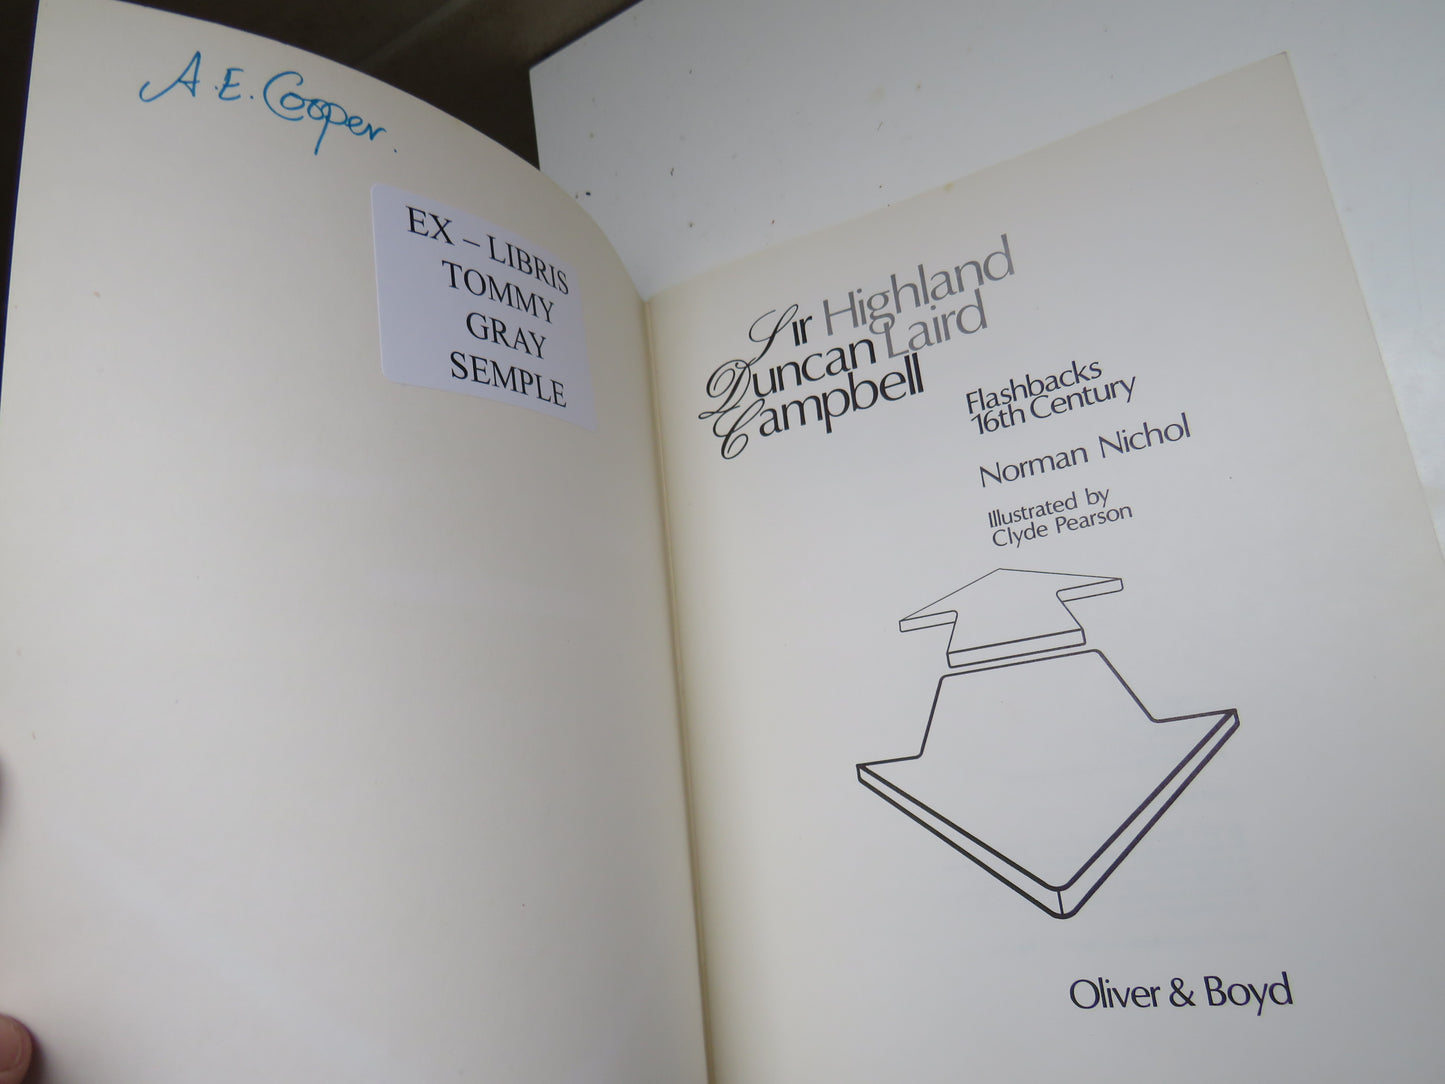 A.E. Cooper.
EX – LIBRIS
TOMMY
GRAY
SEMPLE
Sir Highland
Duncan Laird
Campbell
Flashbacks
16th Century
Norman Nichol
Illustrated by
Clyde Pearson
Oliver & Boyd